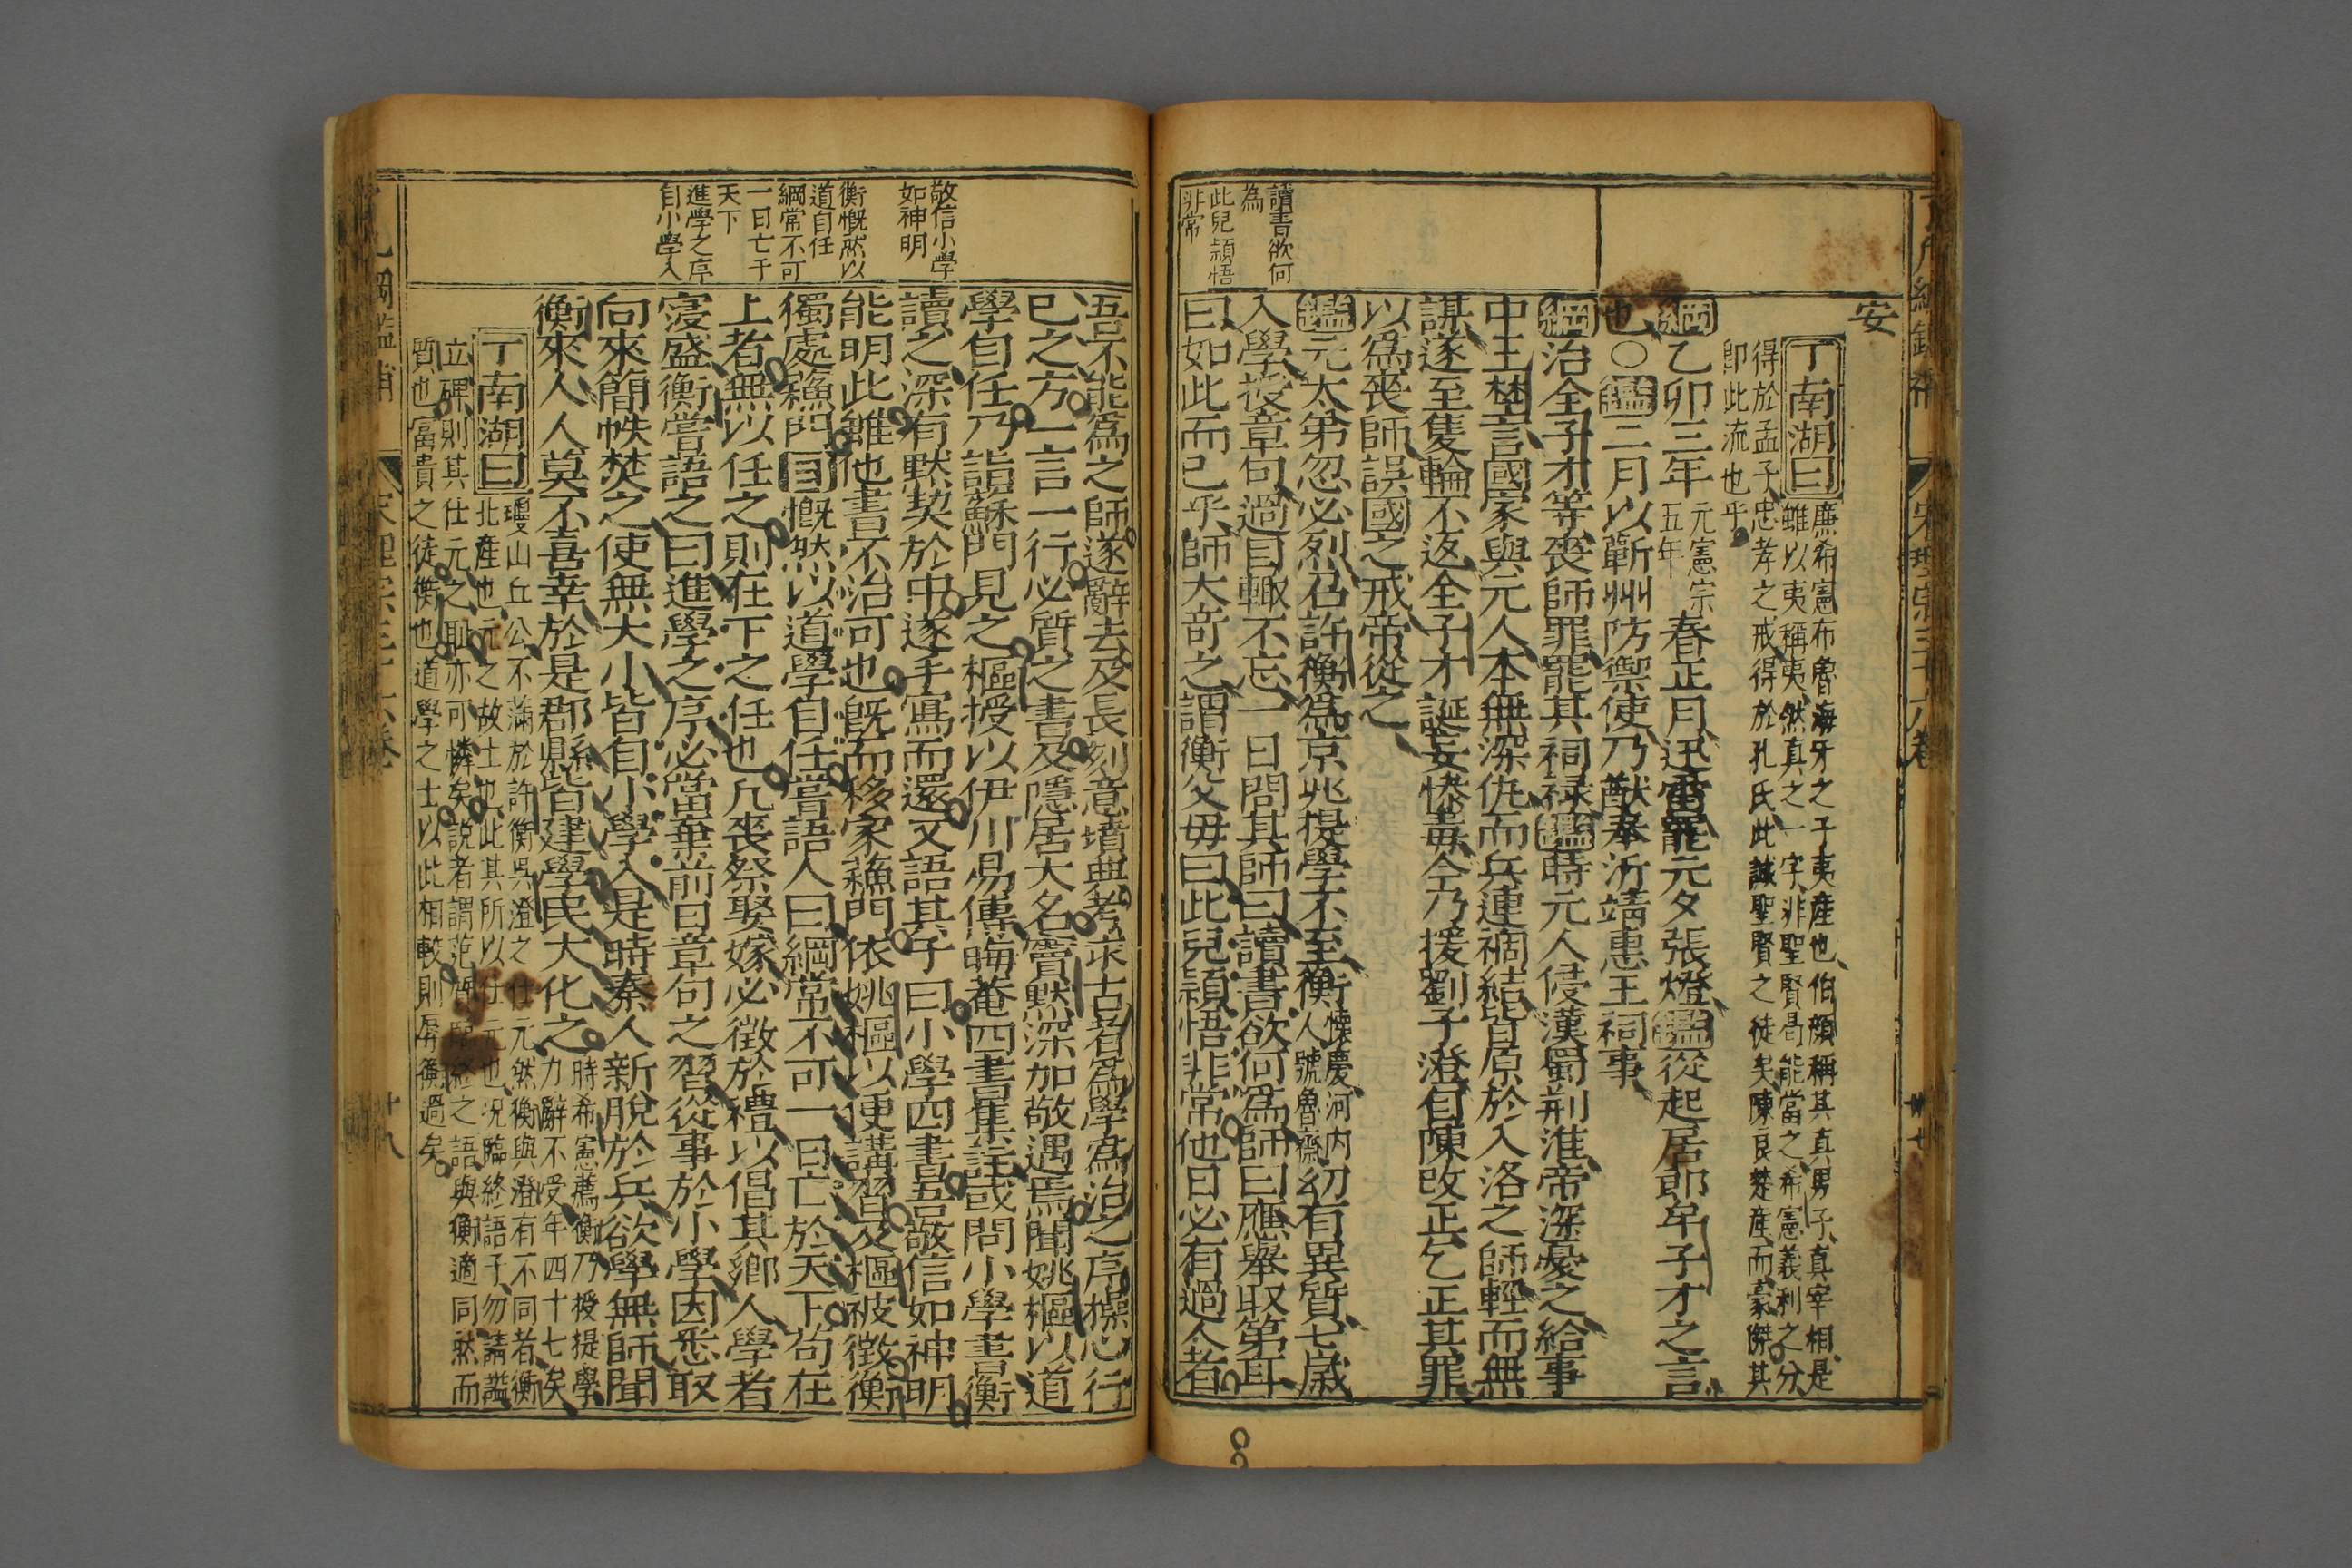 安
丁南湖曰
廉希憲布魯海牙之子夷產也伯顏稱其真男子真宰相是
雖以夷稱夷然真之一字非聖賢曷能當之希憲義利之分
得於孟子忠孝之戒得於孔氏此誠聖賢之徒矣陳良楚產而豪傑其
即此流也乎
綱乙卯三年
元憲宗
五年
春正月迅雷罷元夕張燈鑑從起居郎牟子才之言
也○鑑二月以蘄州防禦使乃猷奉沂靖惠王祠事
綱治全子才等喪師罪罷其祠祿鑑時元人侵漢蜀荊淮帝深憂之給事
中王埜言國家與元人本無深仇而兵連禍結皆原於入洛之師輕而無
謀遂至隻輪不返全子才誕妄慘毒今乃援劉子澄自陳改正乞正其罪
以爲喪師誤國之戒帝從之
鑑元太弟忽必烈召許衡爲京兆提學不至衡
懷慶河內
人號魯齋
幼有異質七歲
入學授章句過目輒不忘一日問其師曰讀書欲何爲師曰應舉取第耳
曰如此而已乎師大奇之謂衡父毋曰此兒穎悟非常他日必有過人者
讀書欲何
為
此兒頴悟
非常
吾不能爲之師遂辭去及長刻意墳典考求古者爲學爲治之序操心行
已之方一言一行必質之書及隱居大名竇默深加敬遇焉聞姚樞以道
學自任乃詣蘇門見之樞授以伊川易傳晦菴四書集註或問小學書衡
讀之深有默契於中遂手寫而還又語其子曰小學四書吾敬信如神明
能明此雖他書不治可也旣而移家蘇門依姚樞以便講習及樞被徵衡
獨處蘇門目慨然以道學自任嘗語人曰綱常不可一日亡於天下苟在
上者無以任之則在下之任也凡喪祭娶嫁必徵於禮以倡其鄉人學者
寖盛衡嘗語之曰進學之序必當棄前日章句之習從事於小學因悉取
向來簡帙焚之使無大小皆自小學入是時秦人新脫於兵欲學無師聞
衡來人人莫不喜幸於是郡縣皆建學民大化之
時希憲薦衡乃授提學
力辭不受年四十七矣
丁南湖曰
瓊山丘公不滿於許衡吳澄之仕元然衡與澄有不同者衡
北產也元之故土也此其所以仕元也况臨終語子勿請謚
立碑則其仕元之耻亦可憐矣說者謂范
終之語與衡適同然而
質也富貴之徒衡也道學之士以此相較則
過矣
敬信小學
如神明
衡慨然以
道自任
綱常不可
一日亡于
天下
進學之序
自小學入
宋理宗三十六卷
十八